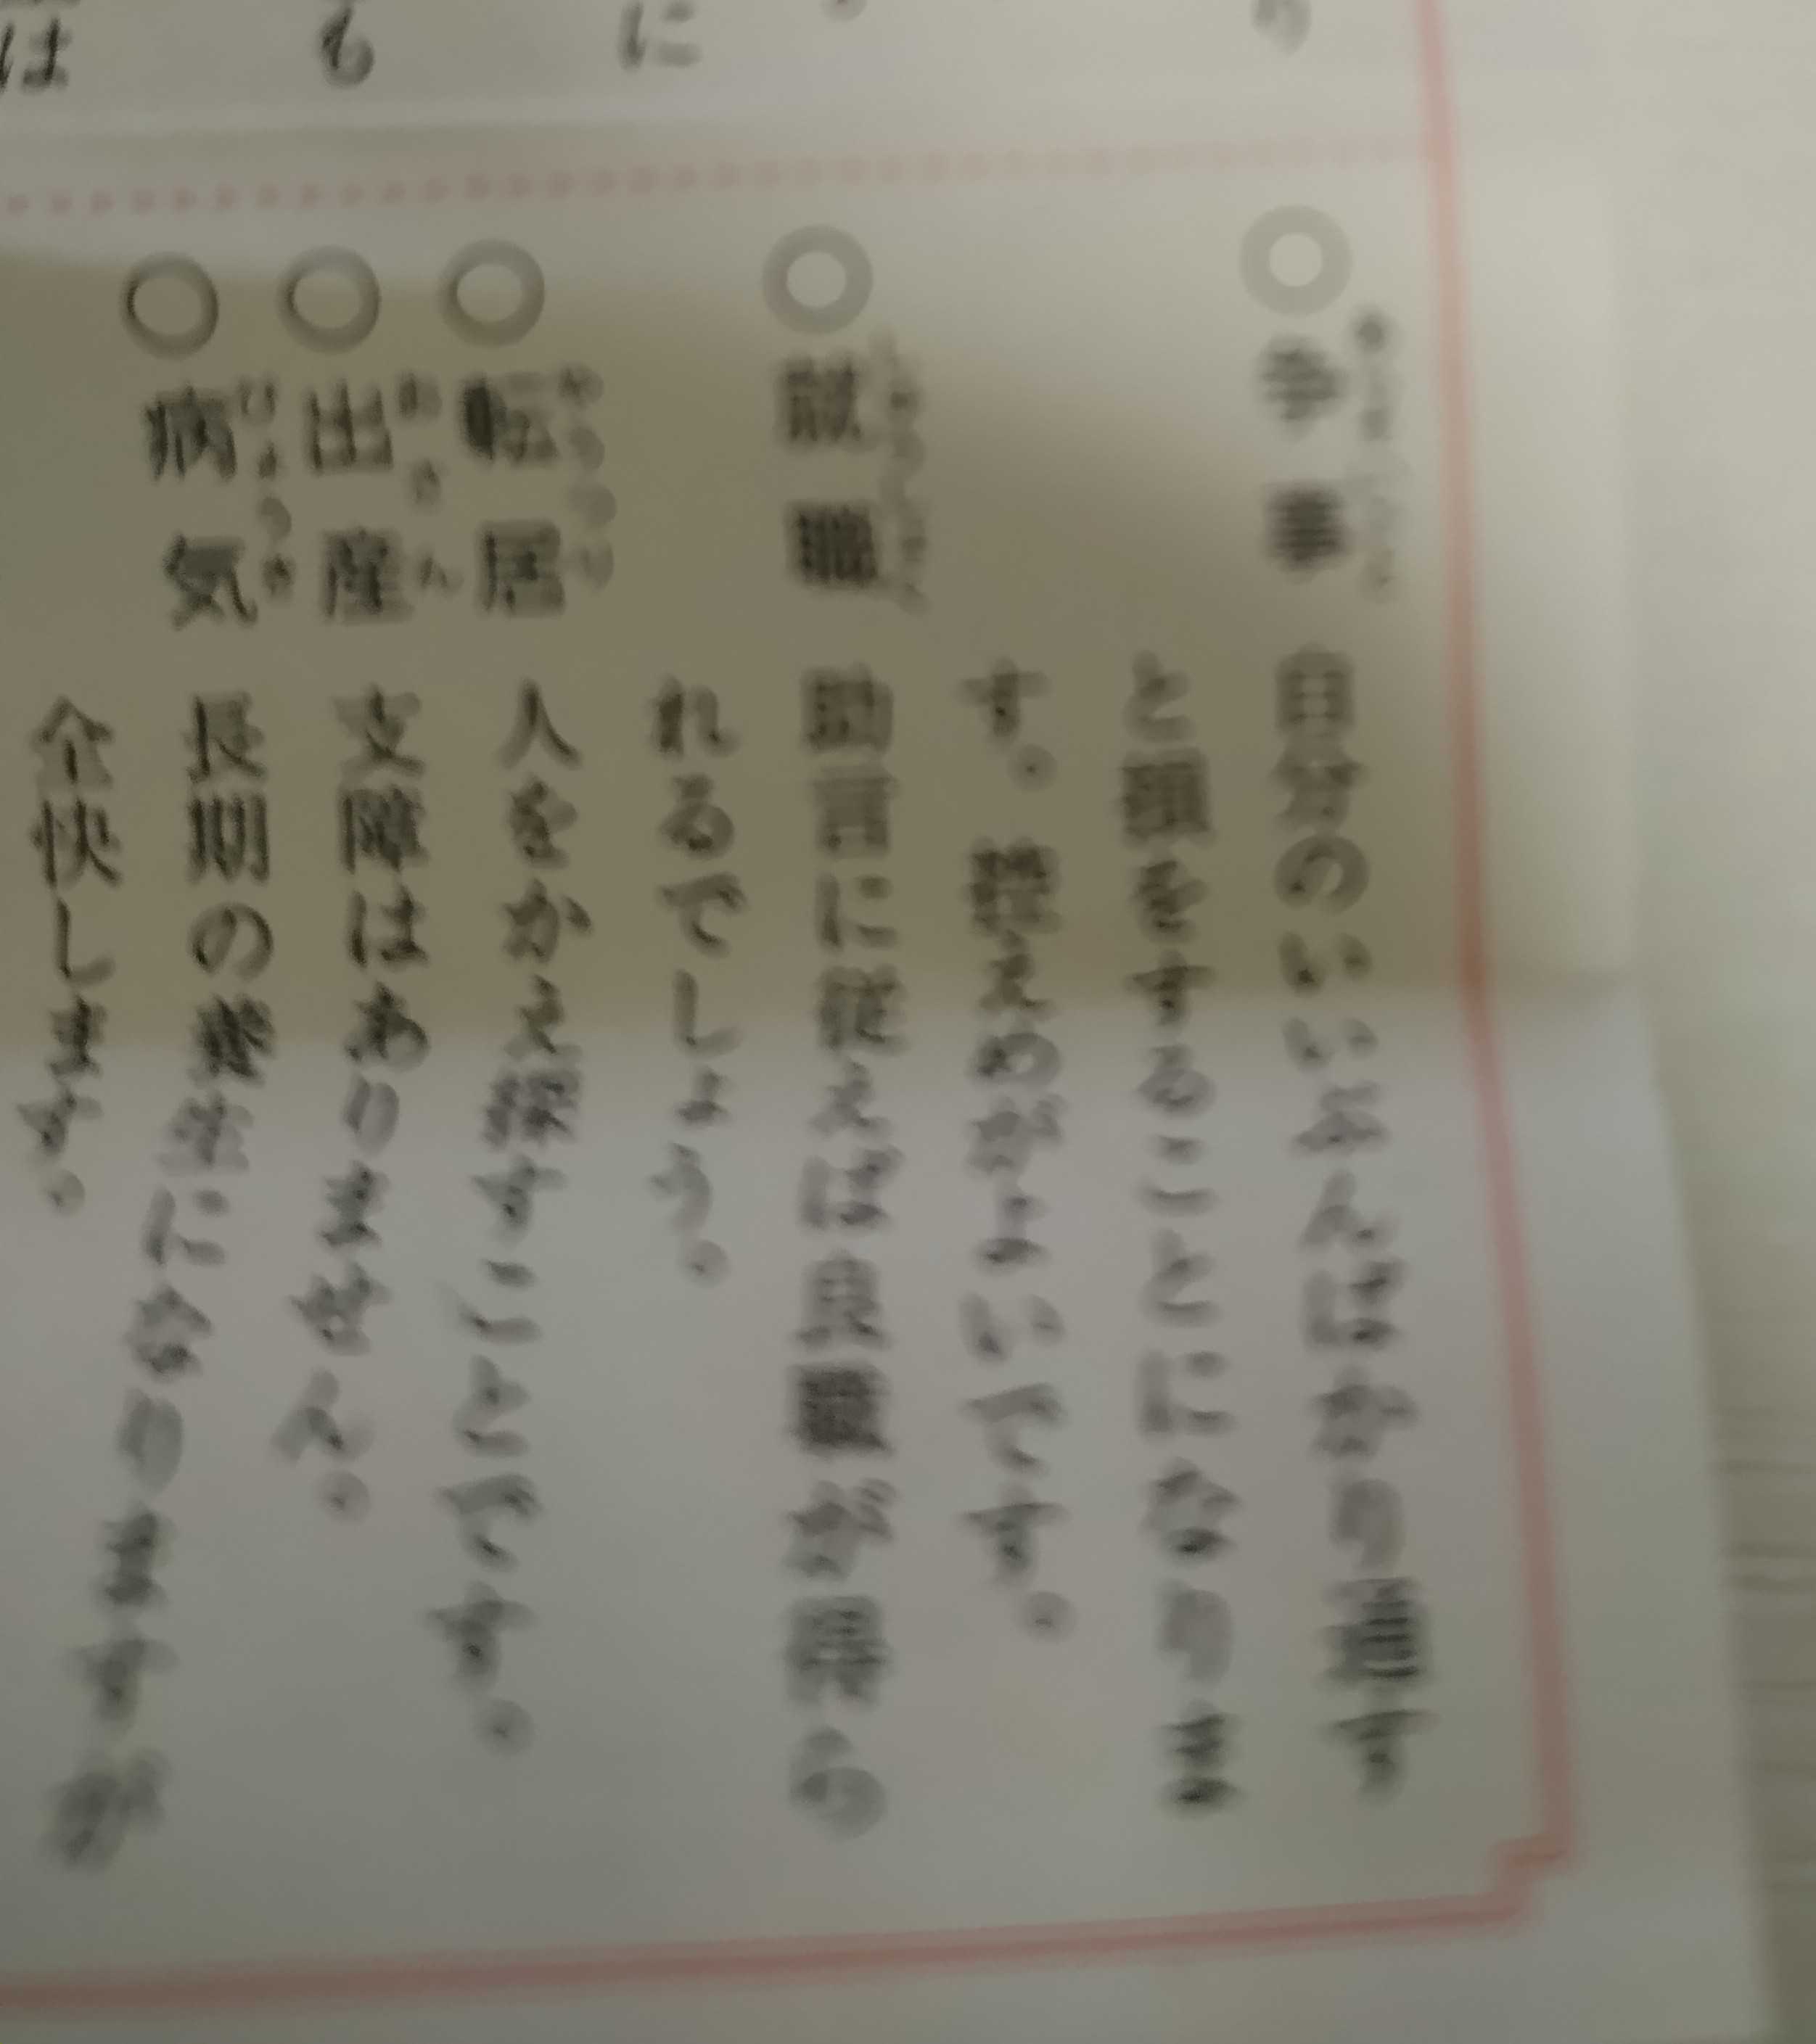 ○争事 自分のいいぶんばかり通す
と損をすることになりま
す。控えめがよいです。
○就職 助言に従えば良職が得ら
れるでしょう。
○転居 人をかえ探すことです。
○出産 支障はありません。
○病気 長期の療法になりますが
全快します。